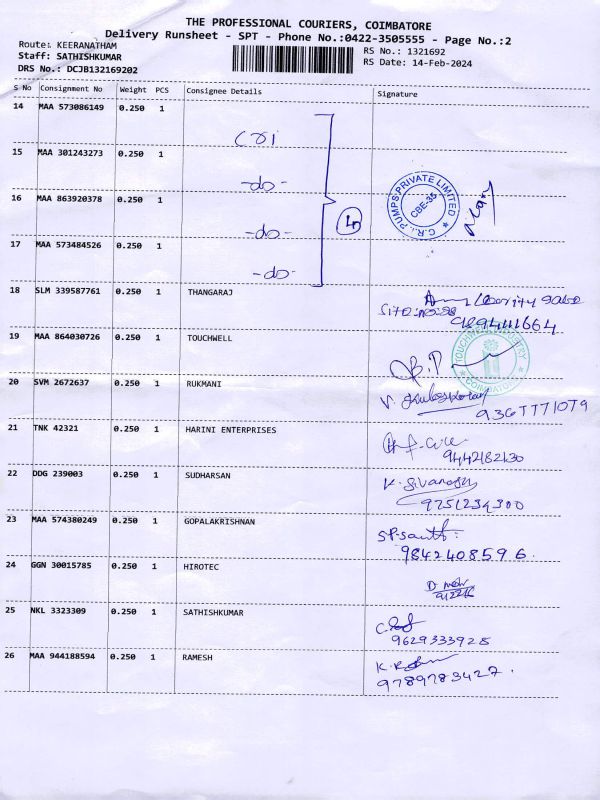 THE PROFESSIONAL COURIERS, COIMBATORE
Delivery Runsheet - SPT - Phone No.:0422-3505555 - Page No.:2
Route: KEERANATHAM
RS No.: 1321692
Staff: SATHISHKUMAR
RS Date: 14-Feb-2024
DRS No.: DCJB132169202
S No Consignment No Weight PCS Consignee Details Signature
14 MAA 573086149 0.250 1
CRI
15 MAA 301243273 0.250 1
-do-
16 MAA 863920378 0.250 1
C.R.I. PUMPS PRIVATE LIMITED
CBE-35
4
-do-
17 MAA 573484526 0.250 1
-do-
18 SLM 339587761 0.250 1 THANGARAJ
19 MAA 864030726 0.250 1 TOUCHWELL
B.P
20 SVM 2672637 0.250 1 RUKMANI
9367771079
21 TNK 42321 0.250 1 HARINI ENTERPRISES
9442182130
22 DDG 239003 0.250 1 SUDHARSAN
9751234300
23 MAA 574380249 0.250 1 GOPALAKRISHNAN
9842408596.
24 GGN 30015785 0.250 1 HIROTEC
25 NKL 3323309 0.250 1 SATHISHKUMAR
9629333925
26 MAA 944188594 0.250 1 RAMESH
9789783427.